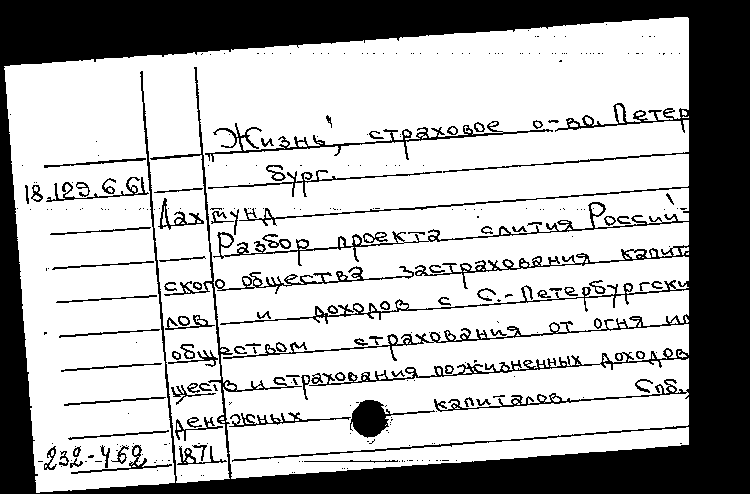 „Жизнь", страховое о-во. Петер
бург.
18.129.6.61
Дахмунд
Разбор проекта слития Россий-
ского общества застрахования капита
лов и доходов с С.-Петербургски
обществом страхования от огня им
ществ и страхования пожизненных доходов
денежных капиталов. Спб.,
232-462 1871.